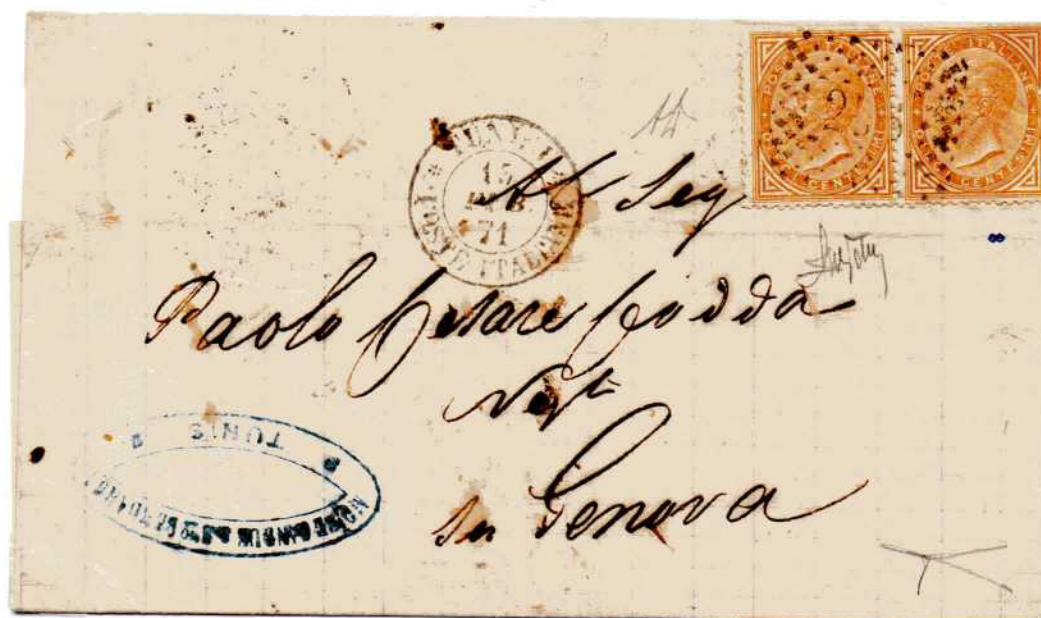 POSTE ITALIANE
DIECI CENTESIMI
POSTE ITALIANE
DIECI CENTESIMI
TUNISI
15
FEB
71
POSTE ITALIANE
Al Sig
Paolo Cesare Codda
Negte
in Genova
TUNIS